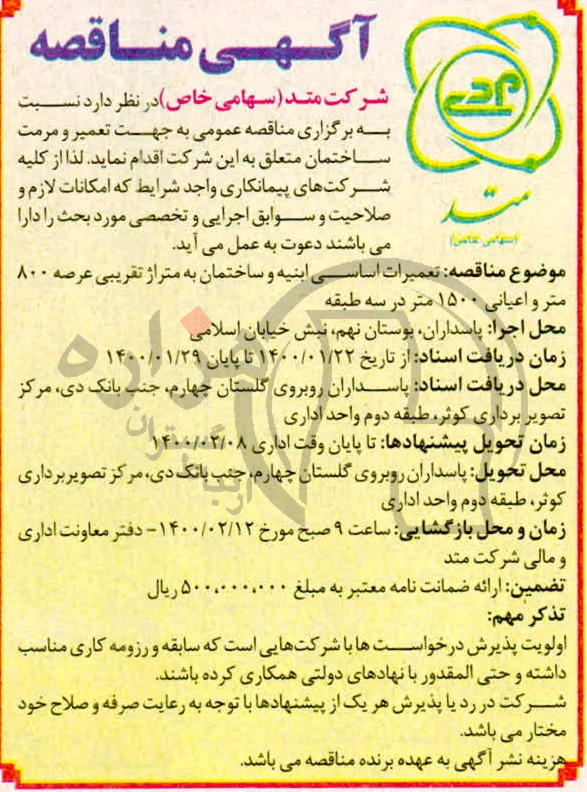 آگهی مناقصه
متد
(سهامی خاص)
شرکت متد (سهامی خاص) در نظر دارد نسبت
به برگزاری مناقصه عمومی به جهت تعمیر و مرمت
ساختمان متعلق به این شرکت اقدام نماید. لذا از کلیه
شرکت‌های پیمانکاری واجد شرایط که امکانات لازم و
صلاحیت و سوابق اجرایی و تخصصی مورد بحث را دارا
می باشند دعوت به عمل می آید.
موضوع مناقصه: تعمیرات اساسی ابنیه و ساختمان به متراژ تقریبی عرصه ۸۰۰
متر و اعیانی ۱۵۰۰ متر در سه طبقه
محل اجرا: پاسداران، بوستان نهم، نبش خیابان اسلامی
زمان دریافت اسناد: از تاریخ ۱۴۰۰/۰۱/۲۲ تا پایان ۱۴۰۰/۰۱/۲۹
محل دریافت اسناد: پاسداران روبروی گلستان چهارم، جنب بانک دی، مرکز
تصویر برداری کوثر، طبقه دوم واحد اداری
زمان تحویل پیشنهادها: تا پایان وقت اداری ۱۴۰۰/۰۲/۰۸
محل تحویل: پاسداران روبروی گلستان چهارم، جنب بانک دی، مرکز تصویربرداری
کوثر، طبقه دوم واحد اداری
زمان و محل بازگشایی: ساعت ۹ صبح مورخ ۱۴۰۰/۰۲/۱۲- دفتر معاونت اداری
و مالی شرکت متد
تضمین: ارائه ضمانت نامه معتبر به مبلغ ۵۰۰،۰۰۰،۰۰۰ ریال
تذکر مهم:
اولویت پذیرش درخواست ها با شرکت‌هایی است که سابقه و رزومه کاری مناسب
داشته و حتی المقدور با نهادهای دولتی همکاری کرده باشند.
شرکت در رد یا پذیرش هر یک از پیشنهادها با توجه به رعایت صرفه و صلاح خود
مختار می باشد.
هزینه نشر آگهی به عهده برنده مناقصه می باشد.